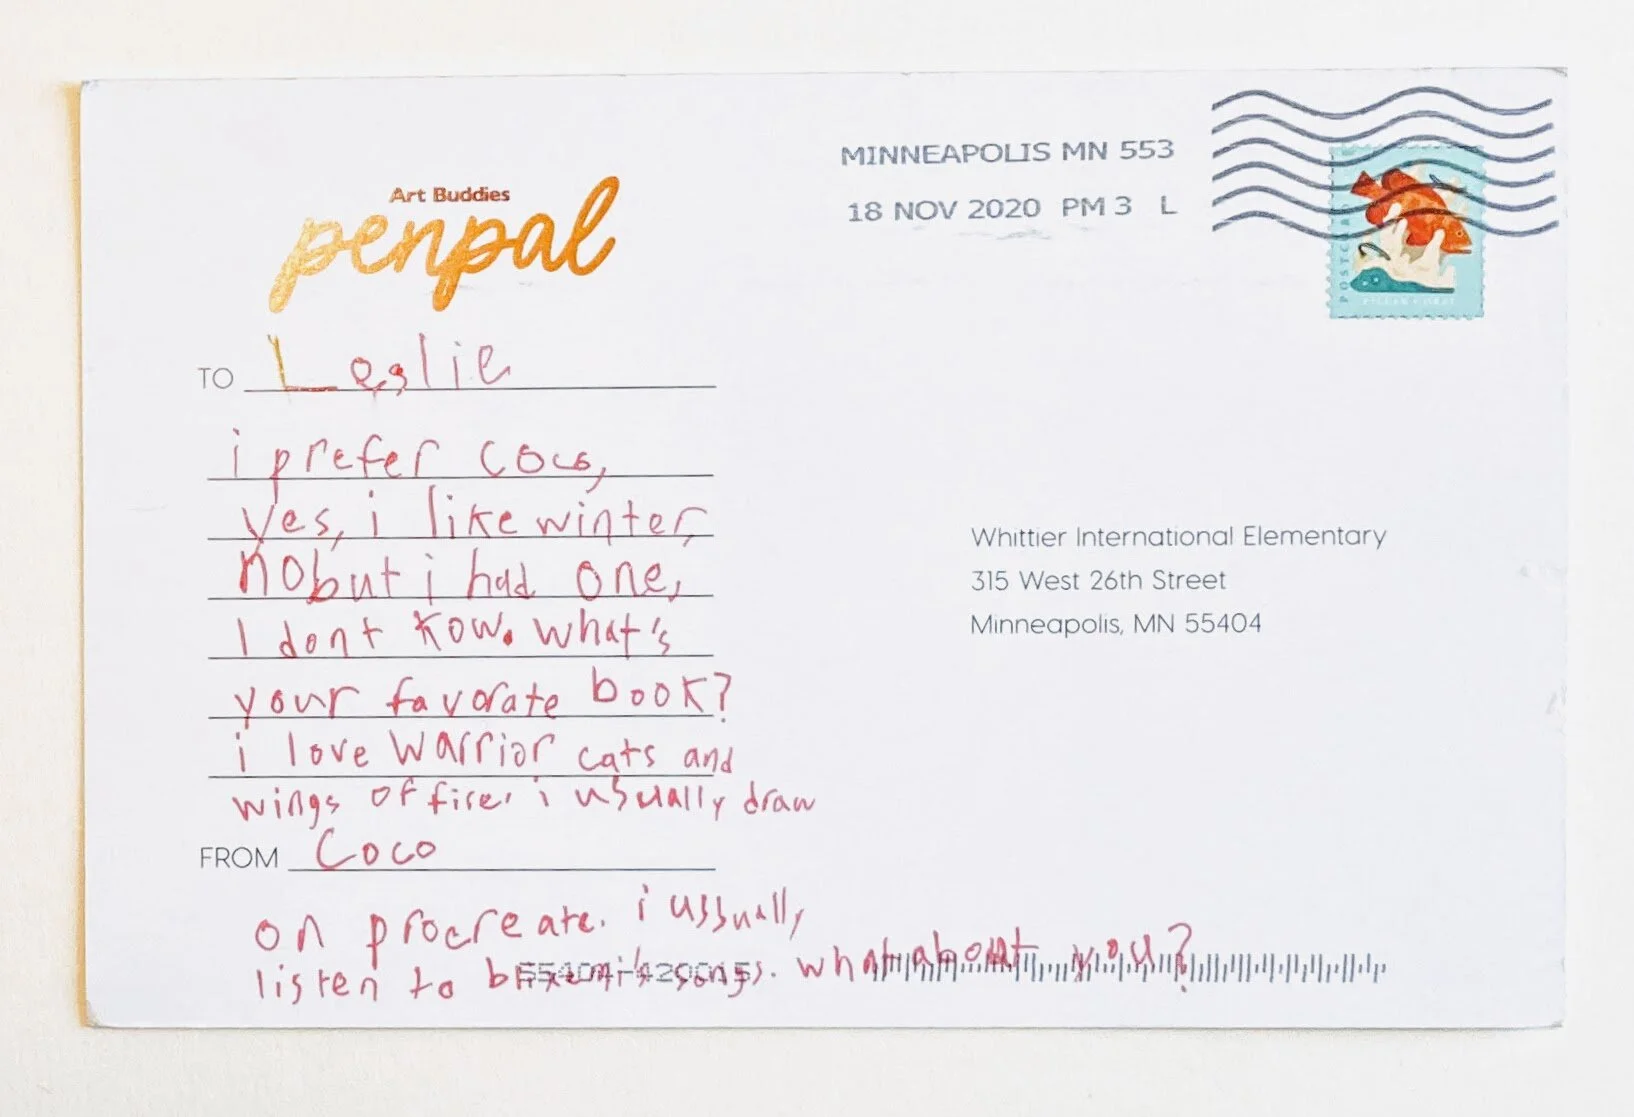 MINNEAPOLIS MN 553
18 NOV 2020 PM 3 L
POSTCARD
Art Buddies
penpal
TO Leslie
i prefer coco,
yes, i like winter,
no but i had one,
I dont kow. what's
your favorate book?
i love warrior cats and
wings of fire. i usually draw
FROM Coco
on procreate. i ussually
listen to songs. what about you?
55404-420015
Whittier International Elementary
315 West 26th Street
Minneapolis, MN 55404